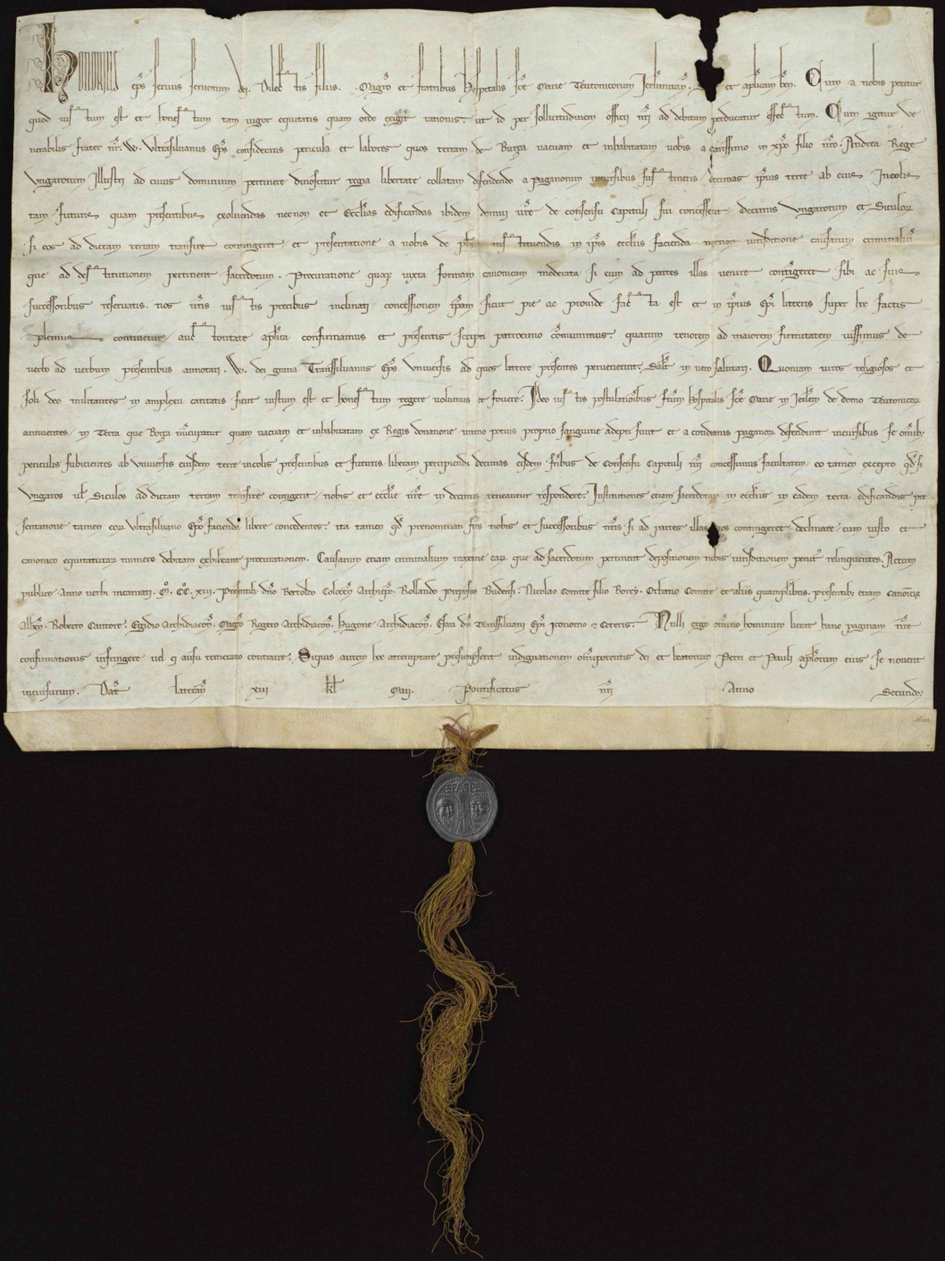 Honorius ep̄s seruus seruorum dei. Dilectis filiis. Magr̄o et fratribus Hospitalis sc̄e Marie Teutonicorum Jerl̄imitan̄. et apl̄icam ben̄. Cum a nobis petitur
quod iustum est et honestum tam uigor equitatis quam ordo exigit rationis: ut id per sollicitudinem officij nr̄i ad debitum perducatur effectum. Cum igitur ve
nerabilis frater nr̄. W. Vltrasiluanus Ep̄s considerans pericula et labores quos terram de Burza uacuam et inhabitatam uobis a carissimo in xp̄o filio nr̄o. Andrea Rege
Vngarorum Illustri ad cuius dominium pertinere dinoscitur regia libertate collatam defendendo a paganorum incursibus sustinetis decimas ip̄ius terre ab eius Incolis
tam futuris quam presentibus exoluendas necnon et Ecclesias edificandas ibidem domui ur̄e de consensu Capituli sui concesserit decimis Vngarorum et Siculor̄
si eos ad dictam terram transire contingeret et presentatione a uobis de pb̄ris instituendis in ip̄is ecclesiis facienda necnon iurisdictione causarum criminaliū
que ad destitutionem pertinent sacerdotum. Procuratione quoq; iuxta formam canonicam moderata si eum ad partes illas uenire contigeret sibi ac suis
successoribus reseruatis. nos ur̄is iustis precibus inclinati concessionem ip̄am sicut pie ac prouide facta est et in ip̄ius ep̄i litteris super hoc factis
plenius continetur auctoritate apl̄ica confirmamus et presentis scripti patrocinio cōmunimus: quarum tenorem ad maiorem firmitatem iussimus de
uerbo ad uerbum presentibus annotari. W. dei gratia Transsiluanus Ep̄s Vniuersis ad quos littere presentes peruenerint: Salt̄ in uero salutari. Quoniam uiros religiosos et
soli deo militantes in amplexu caritatis sicut iustum est et honestum tegere uolumus et fouere: Ideo iustis postulationibus frm̄ Hospitalis sc̄e Marie in Jerl̄m de domo Teutonicor̄
annuentes. in Terra que Borza nūcupatur quam uacuam et inhabitatam ex Regis donatione immo potius proprio sanguine adepti sunt et a cotidianis paganor̄ defendunt incursibus se om̄ib;
periculis subicientes ab uniuersis eiusdem terre incolis presentibus et futuris liberam percipiendi decimas eisdem fr̄ibus de consensu Capituli nr̄i concessimus facultatem. eo tamen excepto qd̄ si
Vngaros uel Siculos ad dictam terram transire contigerit. nobis et ecclesie nr̄e in decimis teneantur respondere: Institutiones etiam sacerdotum in ecclesiis in eadem terra edificandis pre
sentatione tamen eor̄ Vltrasiluano Ep̄o facienda libere concedentes. ita tamen qd̄ prenominati fr̄es nobis et successoribus nr̄is si ad partes illas nos contingeret declinare. cum iusto et
canonico equitaturar̄ numero debitam exhibeant procurationem. Causarum etiam criminalium maxime ear̄ que ad sacerdotum pertinent depositionem nobis iurisdictionem penit' relinquentes. Actum
publice Anno uerbi incarnati. M. CC. xiii. Presentib; dn̄o Bertoldo Colocen̄ Archiep̄o. Rollando preposito Budensi. Nicolao Comite filio Borcy. Ochucio Comite. et aliis quampluribus. presentib; etiam Canonicis
Alben̄. Roberto Cantore. Egidio Archidiacon̄. Magr̄o Rogero Archidiacon̄. Hugone Archidiacon̄. Esau dn̄i Transsiluani Ep̄i yconomo et ceteris. Nulli ergo om̄ino hominum liceat hanc paginam nr̄e
confirmationis infringere uel ei ausu temerario contraire. Siquis autem hoc attemptare presumpserit indignationem om̄ipotentis dei et beatorum Petri et Pauli apl̄orum eius se nouerit
incursurum. Dat̄ Lateran̄ xiii kl̄ Maij. Pontificatus nr̄i Anno Secundo.